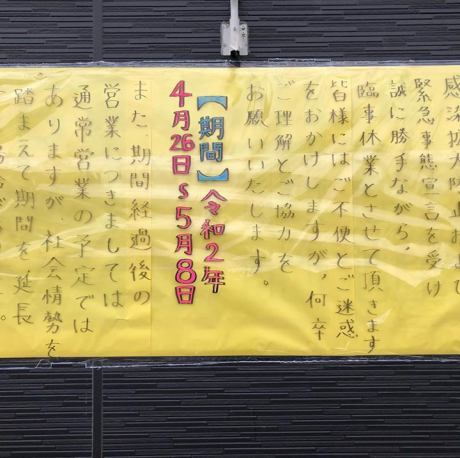 感染拡大防止および
緊急事態宣言を受け
誠に勝手ながら、
臨事休業とさせて頂きます
皆様にはご不便とご迷惑
をおかけしますが、何卒
ご理解とご協力を
お願いいたします。
【期間】令和2年
4月26日~5月8日
また期間経過後の
営業につきましては
通常営業の予定では
ありますが社会情勢を
踏まえて期間を延長